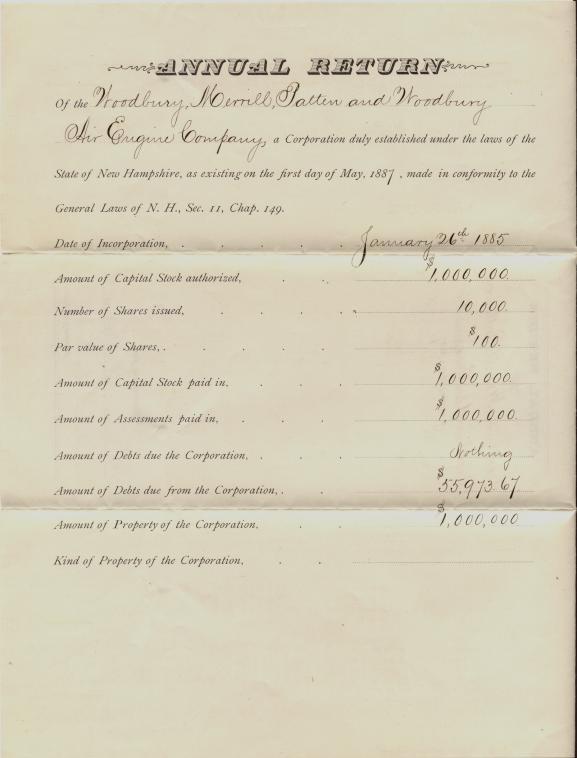 ANNUAL RETURN
Of the Woodbury, Merrill, Patten and Woodbury
Air Engine Company, a Corporation duly established under the laws of the
State of New Hampshire, as existing on the first day of May, 1887, made in conformity to the
General Laws of N. H., Sec. 11, Chap. 149.
Date of Incorporation, . . . . . January 26th 1885
Amount of Capital Stock authorized, . . . $1,000,000.
Number of Shares issued, . . . . 10,000.
Par value of Shares, . . . . . $100.
Amount of Capital Stock paid in, . . . $1,000,000.
Amount of Assessments paid in, . . . $1,000,000.
Amount of Debts due the Corporation, . . . Nothing
Amount of Debts due from the Corporation, . . $55,973.67
Amount of Property of the Corporation, . . $1,000,000
Kind of Property of the Corporation, . .